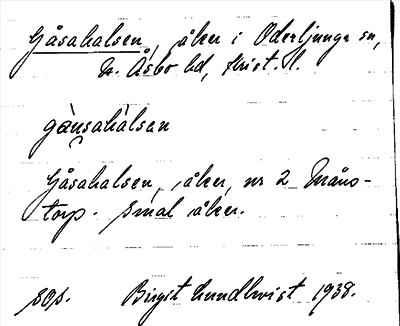 Gåsahalsen, åker i Oderljunga sn,
N. Åsbo hd, Krist. l.
gàusahàlsan
Gåsahalsen, åker, nr 2 Måns-
torp. Smal åker.
Birgit Lundkvist 1938.